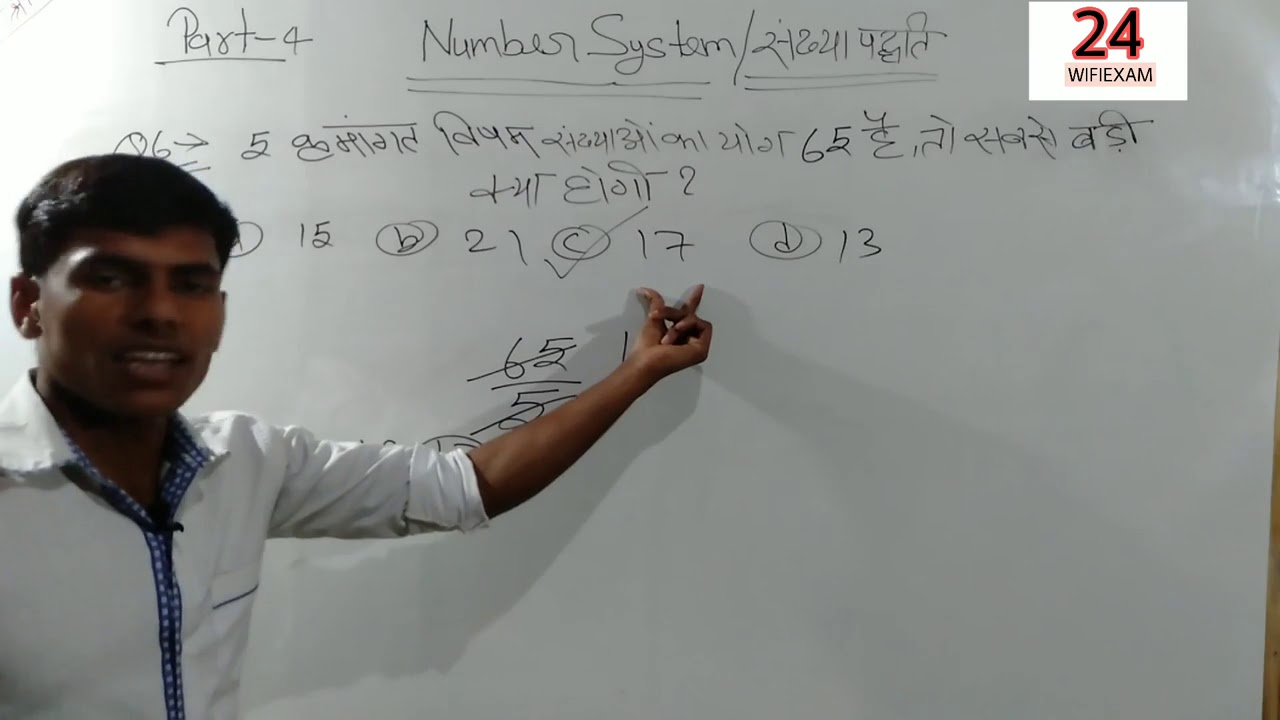 Part-4 Number System/संख्या पद्धति
24
WIFIEXAM
Q6→ 5 क्रमांगत विषम संख्याओं का योग 65 है, तो सबसे बड़ी
क्या होगी ?
15 (b) 21 (c) 17 (d) 13
65
5